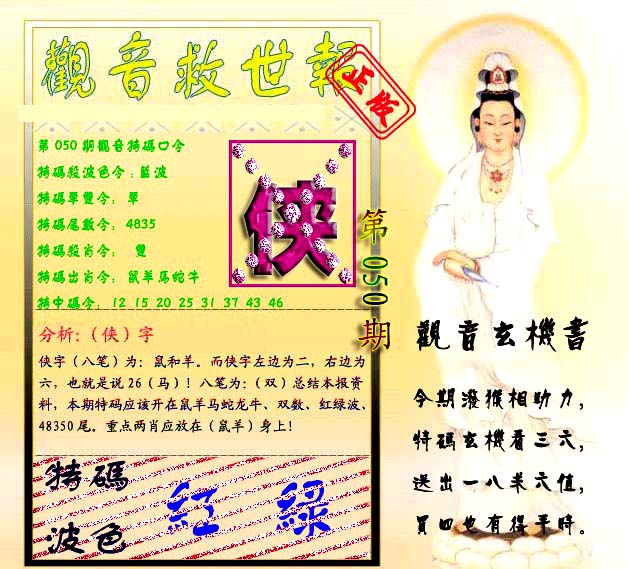 觀音救世報
正版
第050期觀音特碼口令
特碼殺波色令:藍波
特碼單雙令: 單
特碼尾數令: 4835
特碼殺肖令: 雙
特碼出肖令: 鼠羊馬蛇牛
特中碼令: 12 15 20 25 31 37 43 46
俠
第050期
分析:(侠)字
侠字(八笔)为:鼠和羊。而侠字左边为二,右边为
六,也就是说26(马)!八笔为:(双)总结本报资
料,本期特码应该开在鼠羊马蛇龙牛、双数、红绿波、
48350尾。重点两肖应放在(鼠羊)身上!
特碼
波色
紅 綠
觀音玄機書
今期潑猴相助力,
特碼玄機看三六,
送出一八半六值,
買四也有得手時。